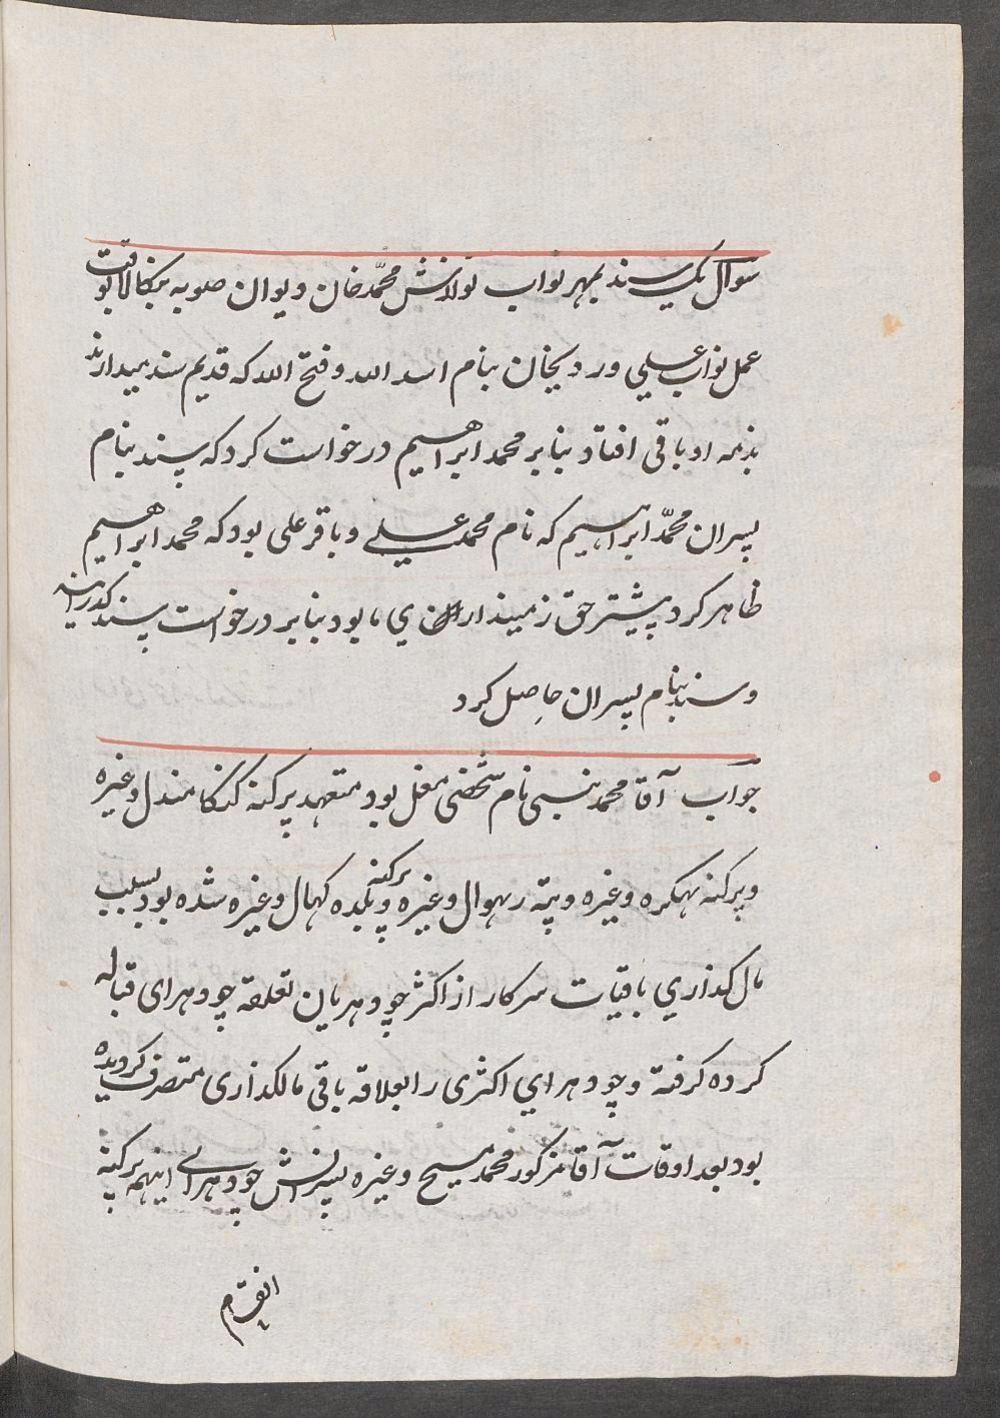 سوال یک سند بمهر نواب نوازش محمّد خان دیوان صوبه بنکالا
عمل نواب علی وردیخان بنام اسد الله و فتح الله که قدیم سند میدارند
بذمه او باقی افتاد بنابر محمد ابراهیم درخواست کرد که سند بنام
پسران محمّد ابراهیم که نام محمد علی و باقر علی بود که محمد ابراهیم
ظاهر کرد پیشتر حق زمینداری ما بود بنابر درخواست سند کذرانید
و سند بنام پسران حاصل کرد
جواب آقا محمد نام شخصی مغل بود متعهد پرکنه کنکا مندل وغیره
و پرکنه بهکره وغیره و پته رهوال وغیره و پرکنه بلده کهال وغیره شده بود بسبب
مال کذاري باقیات سرکار از اکثر چودهریان تعلقه چودهرای قباله
کرده کرفته و چودهراي اکثری را بعلاقه باقی مالکذاری متصرف کردیده
بود بعد اوقات آقا مزکور محمد مسیح وغیره پسرانش چودهرای اینهمه پرکنه